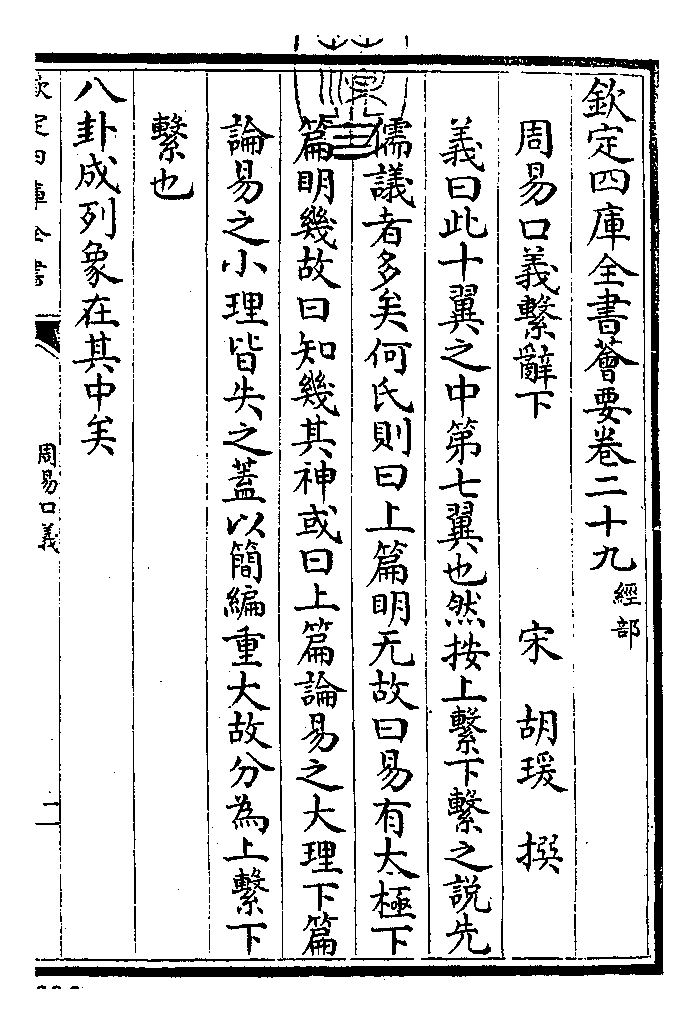 欽定四庫全書薈要卷二十九 經部
周易口義繫辭下 宋 胡瑗 撰
義曰此十翼之中第七翼也然按上繫下繫之說先
儒議者多矣何氏則曰上篇明无故曰易有太極下
篇明幾故曰知幾其神或曰上篇論易之大理下篇
論易之小理皆失之蓋以簡編重大故分為上繫下
繫也
八卦成列象在其中矣
欽定四庫全書
周易口義
二